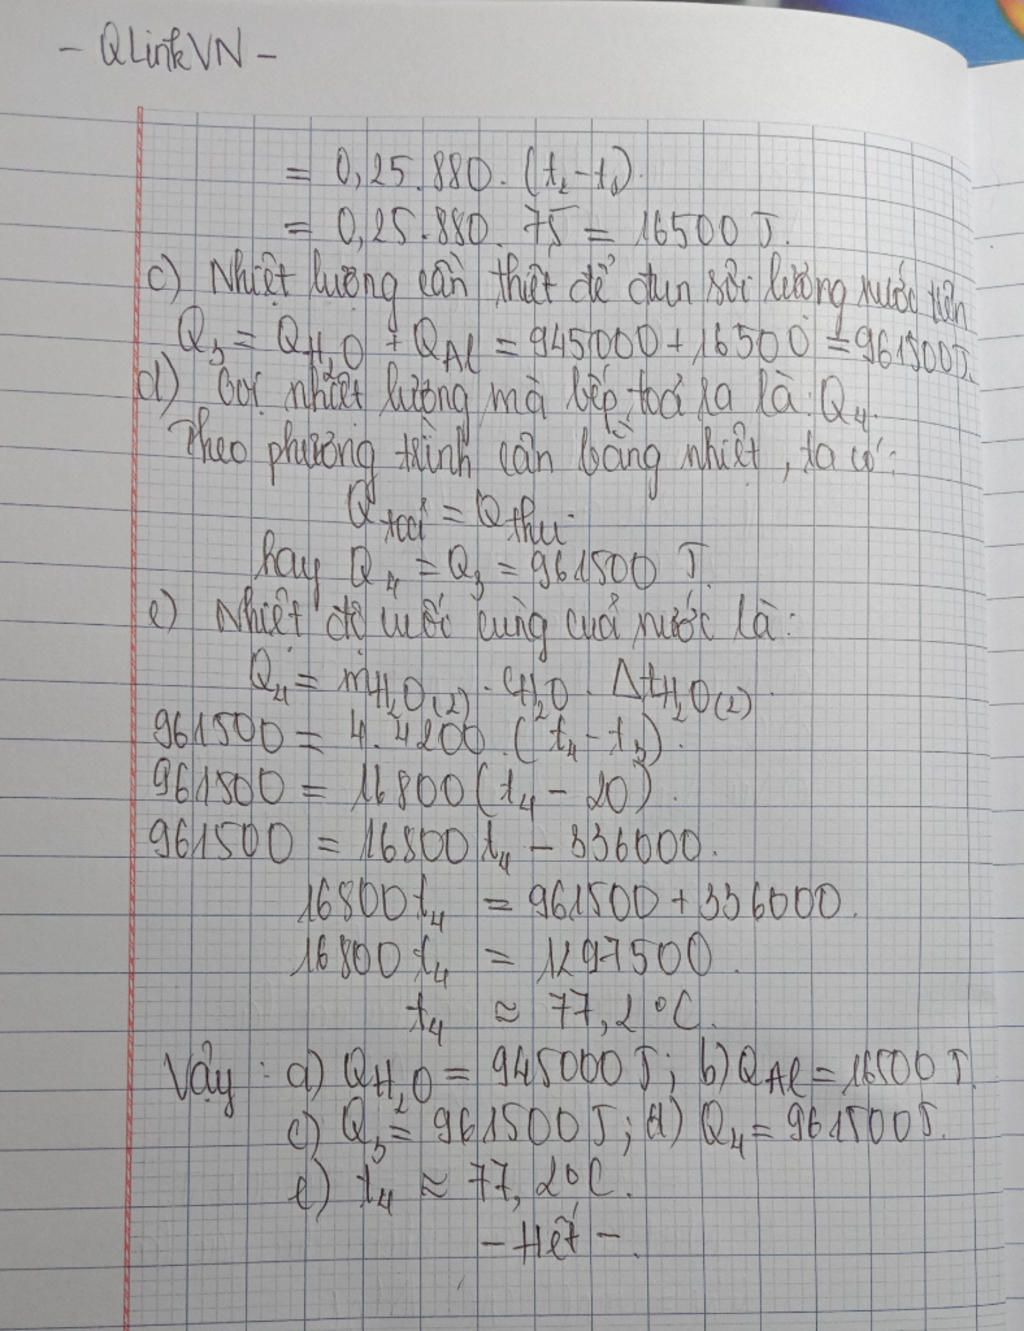 - QLinkVN -
= 0,25.880.(t₂-t₁).
= 0,25.880.75 = 16500 J.
c) Nhiệt lượng cần thiết để đun sôi lượng nước trên
Q₃ = QH₂O + QAl = 945000 + 16500 = 961500J.
d) Gọi nhiệt lượng mà bếp toả ra là: Q₄.
Theo phương trình cân bằng nhiệt, ta có:
Qtoả = Qthu.
hay Q₄ = Q₃ = 961500 J.
e) Nhiệt độ cuối cùng của nước là:
Q₄ = mH₂O(2) . cH₂O . ΔtH₂O(2).
961500 = 4.4200.(t₄-t₃).
961500 = 16800(t₄-20).
961500 = 16800t₄ - 336000.
16800t₄ = 961500 + 336000.
16800t₄ = 1297500.
t₄ ≈ 77,2°C.
Vậy: a) QH₂O = 945000J; b) QAl = 16500J
c) Q₃ = 961500J; d) Q₄ = 961500J.
e) t₄ ≈ 77,2°C.
- Hết -.